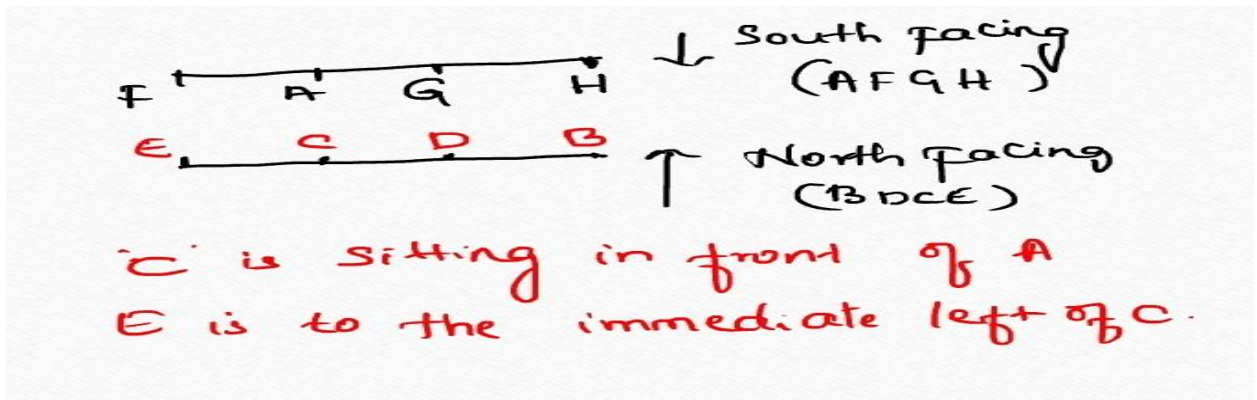 ↓ South facing
F A G H (AFGH)
E C D B
↑ North facing
(BDCE)
'C' is sitting in front of A
E is to the immediate left of C.